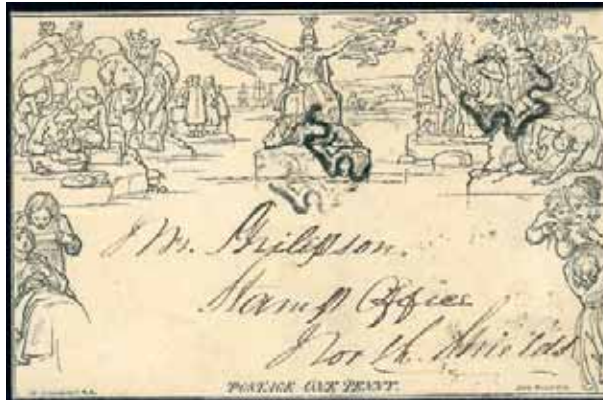 Mr. Philipson.
Stamp Office
North Shields
POSTAGE ONE PENNY.